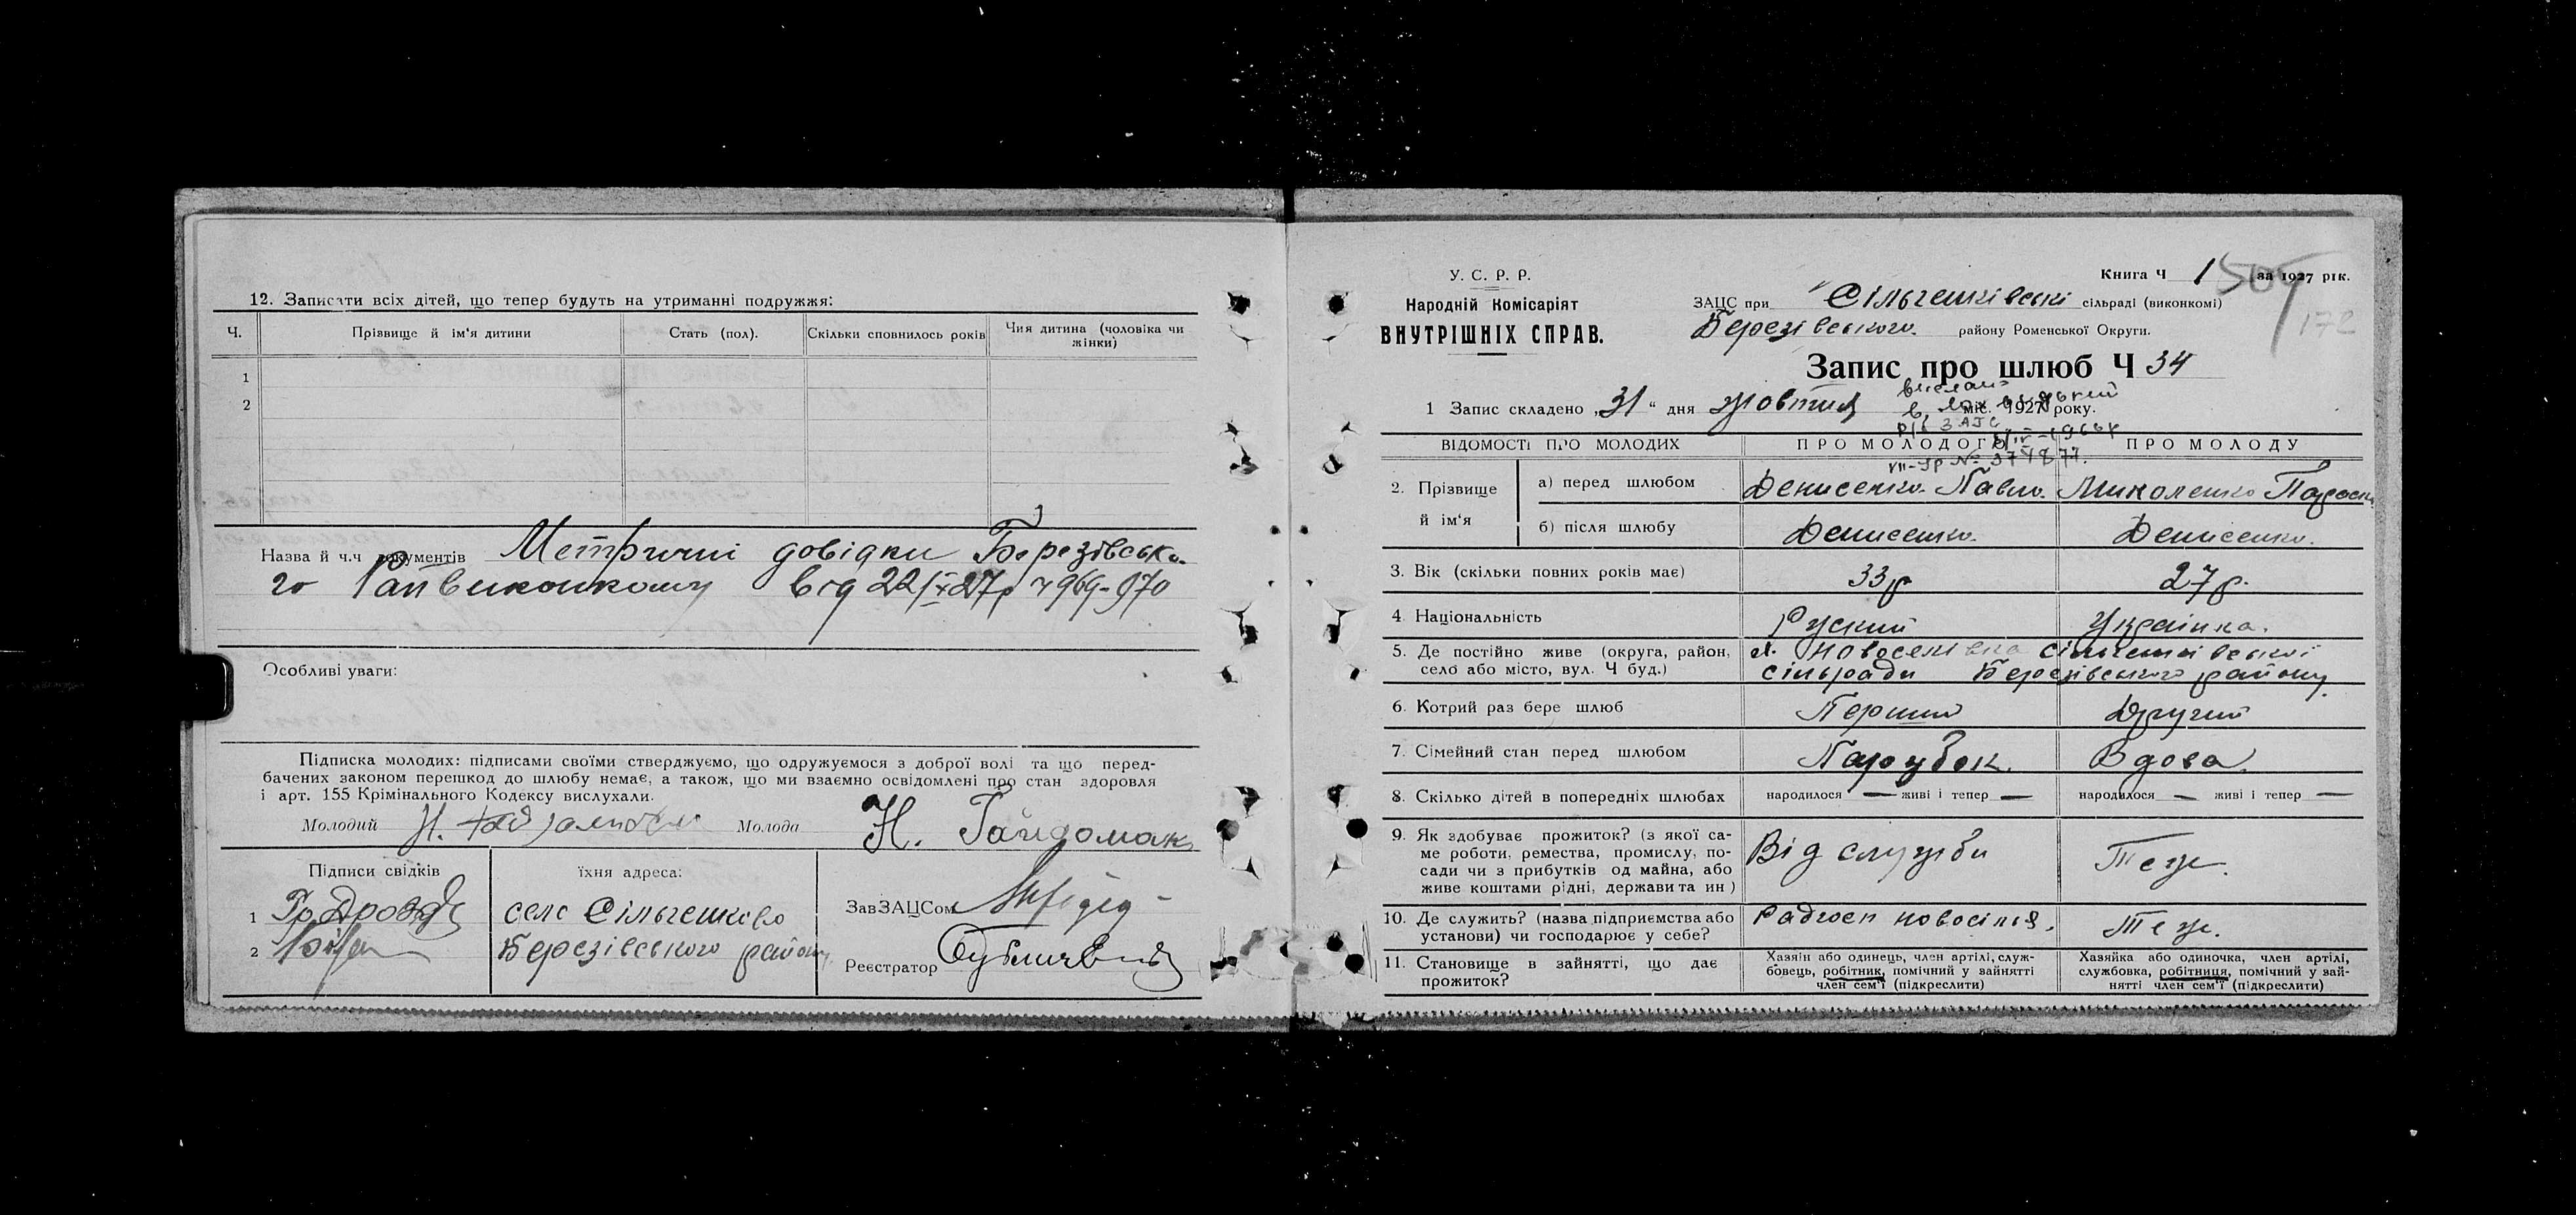 12. Записати всіх дітей, що тепер будуть на утриманні подружжя:
Ч. Прізвище й ім'я дитини Стать (пол). Скільки сповнилось років Чия дитина (чоловіка чи жінки)
1
2
Назва й ч.ч документів Метричні довідки Березівсько-
го Райвиконкому від 22/IX 27р ч 969-970
Особливі уваги:
Підписка молодих: підписами своїми стверджуємо, що одружуємося з доброї волі та що перед-
бачених законом перешкод до шлюбу немає, а також, що ми взаємно освідомлені про стан здоровля
і арт. 155 Крімінального Кодексу вислухали.
Молодий Н. Молода Н. Гайдомака
Підписи свідків їхня адреса:
1 село Сільчешково ЗавЗАЦСом
2 Березівського району Реєстратор
У. С. Р. Р.
Народній Комісаріят
ВНУТРІШНІХ СПРАВ.
Книга Ч 1 за 1927 рік.
505
172
ЗАЦС при Сільчешківські сільраді (виконкомі)
Березівського району Роменської Округи.
Запис про шлюб Ч 34
1 Запис складено „31" дня жовтня міс. 1927 року.
р/б ЗАГС
VII-УР № 374877.
ВІДОМОСТІ ПРО МОЛОДИХ ПРО МОЛОДОГО ПРО МОЛОДУ
2. Прізвище й ім'я
а) перед шлюбом Денисенко Павло Миколенко
б) після шлюбу Денисенко Денисенко
3. Вік (скільки повних років має) 33р 27р.
4 Національність Руский Українка.
5. Де постійно живе (округа, район, х. Новоселівка Сільчешківської
село або місто, вул. Ч буд.) сільради Березівського району
6. Котрий раз бере шлюб Перший Другий
7. Сімейний стан перед шлюбом Парубок. Вдова.
8. Скілько дітей в попередніх шлюбах народилося — живі і тепер — народилося — живі і тепер —
9. Як здобуває прожиток? (з якої са-
ме роботи, ремества, промислу, по-
сади чи з прибутків од майна, або
живе коштами рідні, держави та ин)
Від служби Теж.
10. Де служить? (назва підприемства або
установи) чи господарює у себе?
Радгосп Новосілля. Теж.
11. Становище в зайнятті, що дає
прожиток?
Хазяїн або одинець, член артілі, служ-
бовець, робітник, помічний у зайнятті
член сем'ї (підкреслити)
Хазяйка або одиночка, член артілі,
службовка, робітниця, помічний у зай-
нятті член сем'ї (підкреслити)